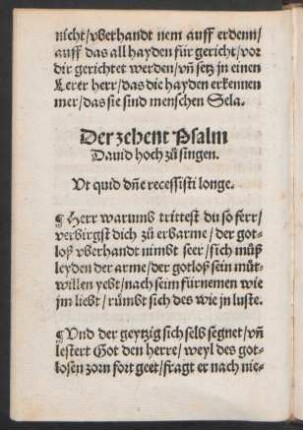 nicht/vberhandt nem auff erdenn/
auff das all hayden für gericht/vor
dir gerichtet werden/vn̄ setz jn einen
Lerer herr/das die hayden erkennen
mer/das sie sind menschen Sela.
Der zehent Psalm
Dauid hoch zů singen.
Vt quid dn̄e recessisti longe.
¶ Herr warumb trittest du so ferr/
verbirgst dich zů erbarme/der got-
loß vberhandt nimbt seer/sich můß
leyden der arme/der gotloß sein můt-
willen yebt/nach seim fürnemen wie
jm liebt/růmbt sich des wie jn luste.
¶Vnd der geytzig sich selb segnet/vn̄
lestert Got den herre/weyl des got-
losen zorn fort geet/fragt er nach nie-